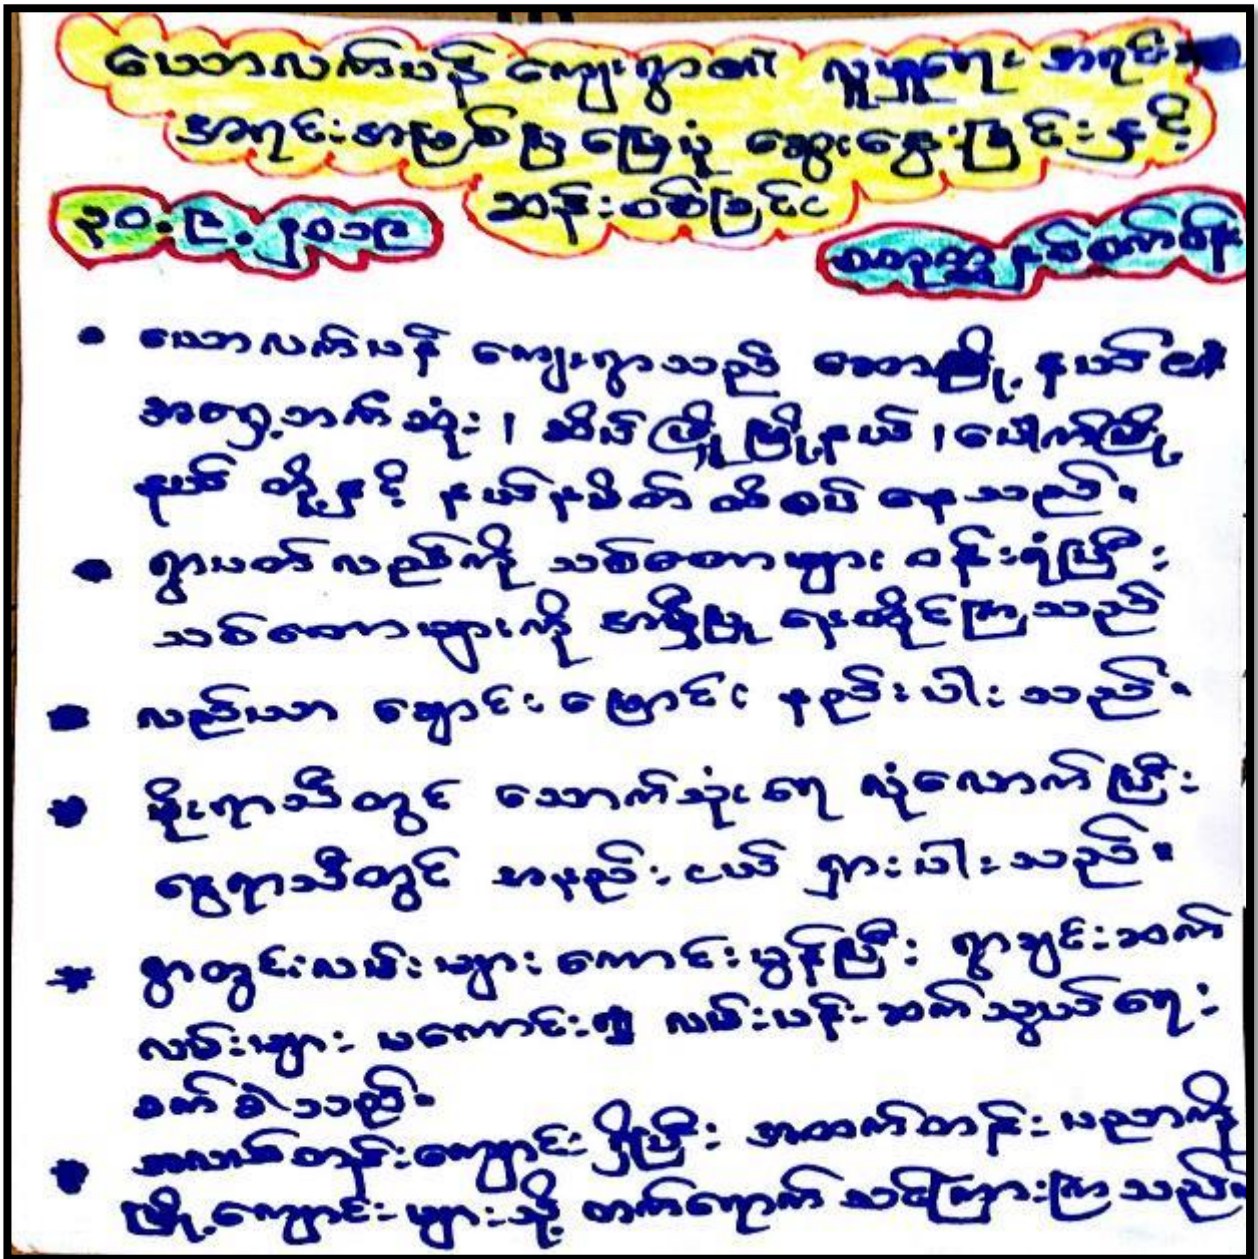 ယောလက်ပန် ကျေးရွာ၏ လူမှုရေး အရင်း
အရင်းအမြစ်ပြမြေပုံ ဆွေးနွေးခြင်းနှင့်
ဆန်းစစ်ခြင်း
၃၀.၉.၂၀၁၉
စတုတ္ထနှစ်စက်ဝန်း
• ယောလက်ပန် ကျေးရွာသည် ဆောမြို့နယ်၏
အရှေ့ဘက်ဆုံး၊ ဆိပ်ဖြူမြို့နယ်၊ ပေါက်မြို့
နယ် တို့နှင့် နယ်နမိတ် ထိစပ် နေသည်။
• ရွာပတ်လည်ကို သစ်တောများ ဝန်းရံပြီး
သစ်တောများကို အမှီပြု နေထိုင်ကြသည်
• လည်ယာ ချောင်းမြောင်း နည်းပါးသည်။
• မိုးရာသီတွင် သောက်သုံးရေ လုံလောက်ပြီး
နွေရာသီတွင် အနည်းငယ် ရှားပါးသည်။
• ရွာတွင်းလမ်းများ ကောင်းမွန်ပြီး ရွာချင်းဆက်
လမ်းများ မကောင်း၍ လမ်းပန်းဆက်သွယ်ရေး
ခက်ခဲသည်။
• အလယ်တန်းကျောင်း ရှိပြီး အထက်တန်း ပညာကို
မြို့ကျောင်းများသို့ တက်ရောက် သင်ကြားကြသည်။